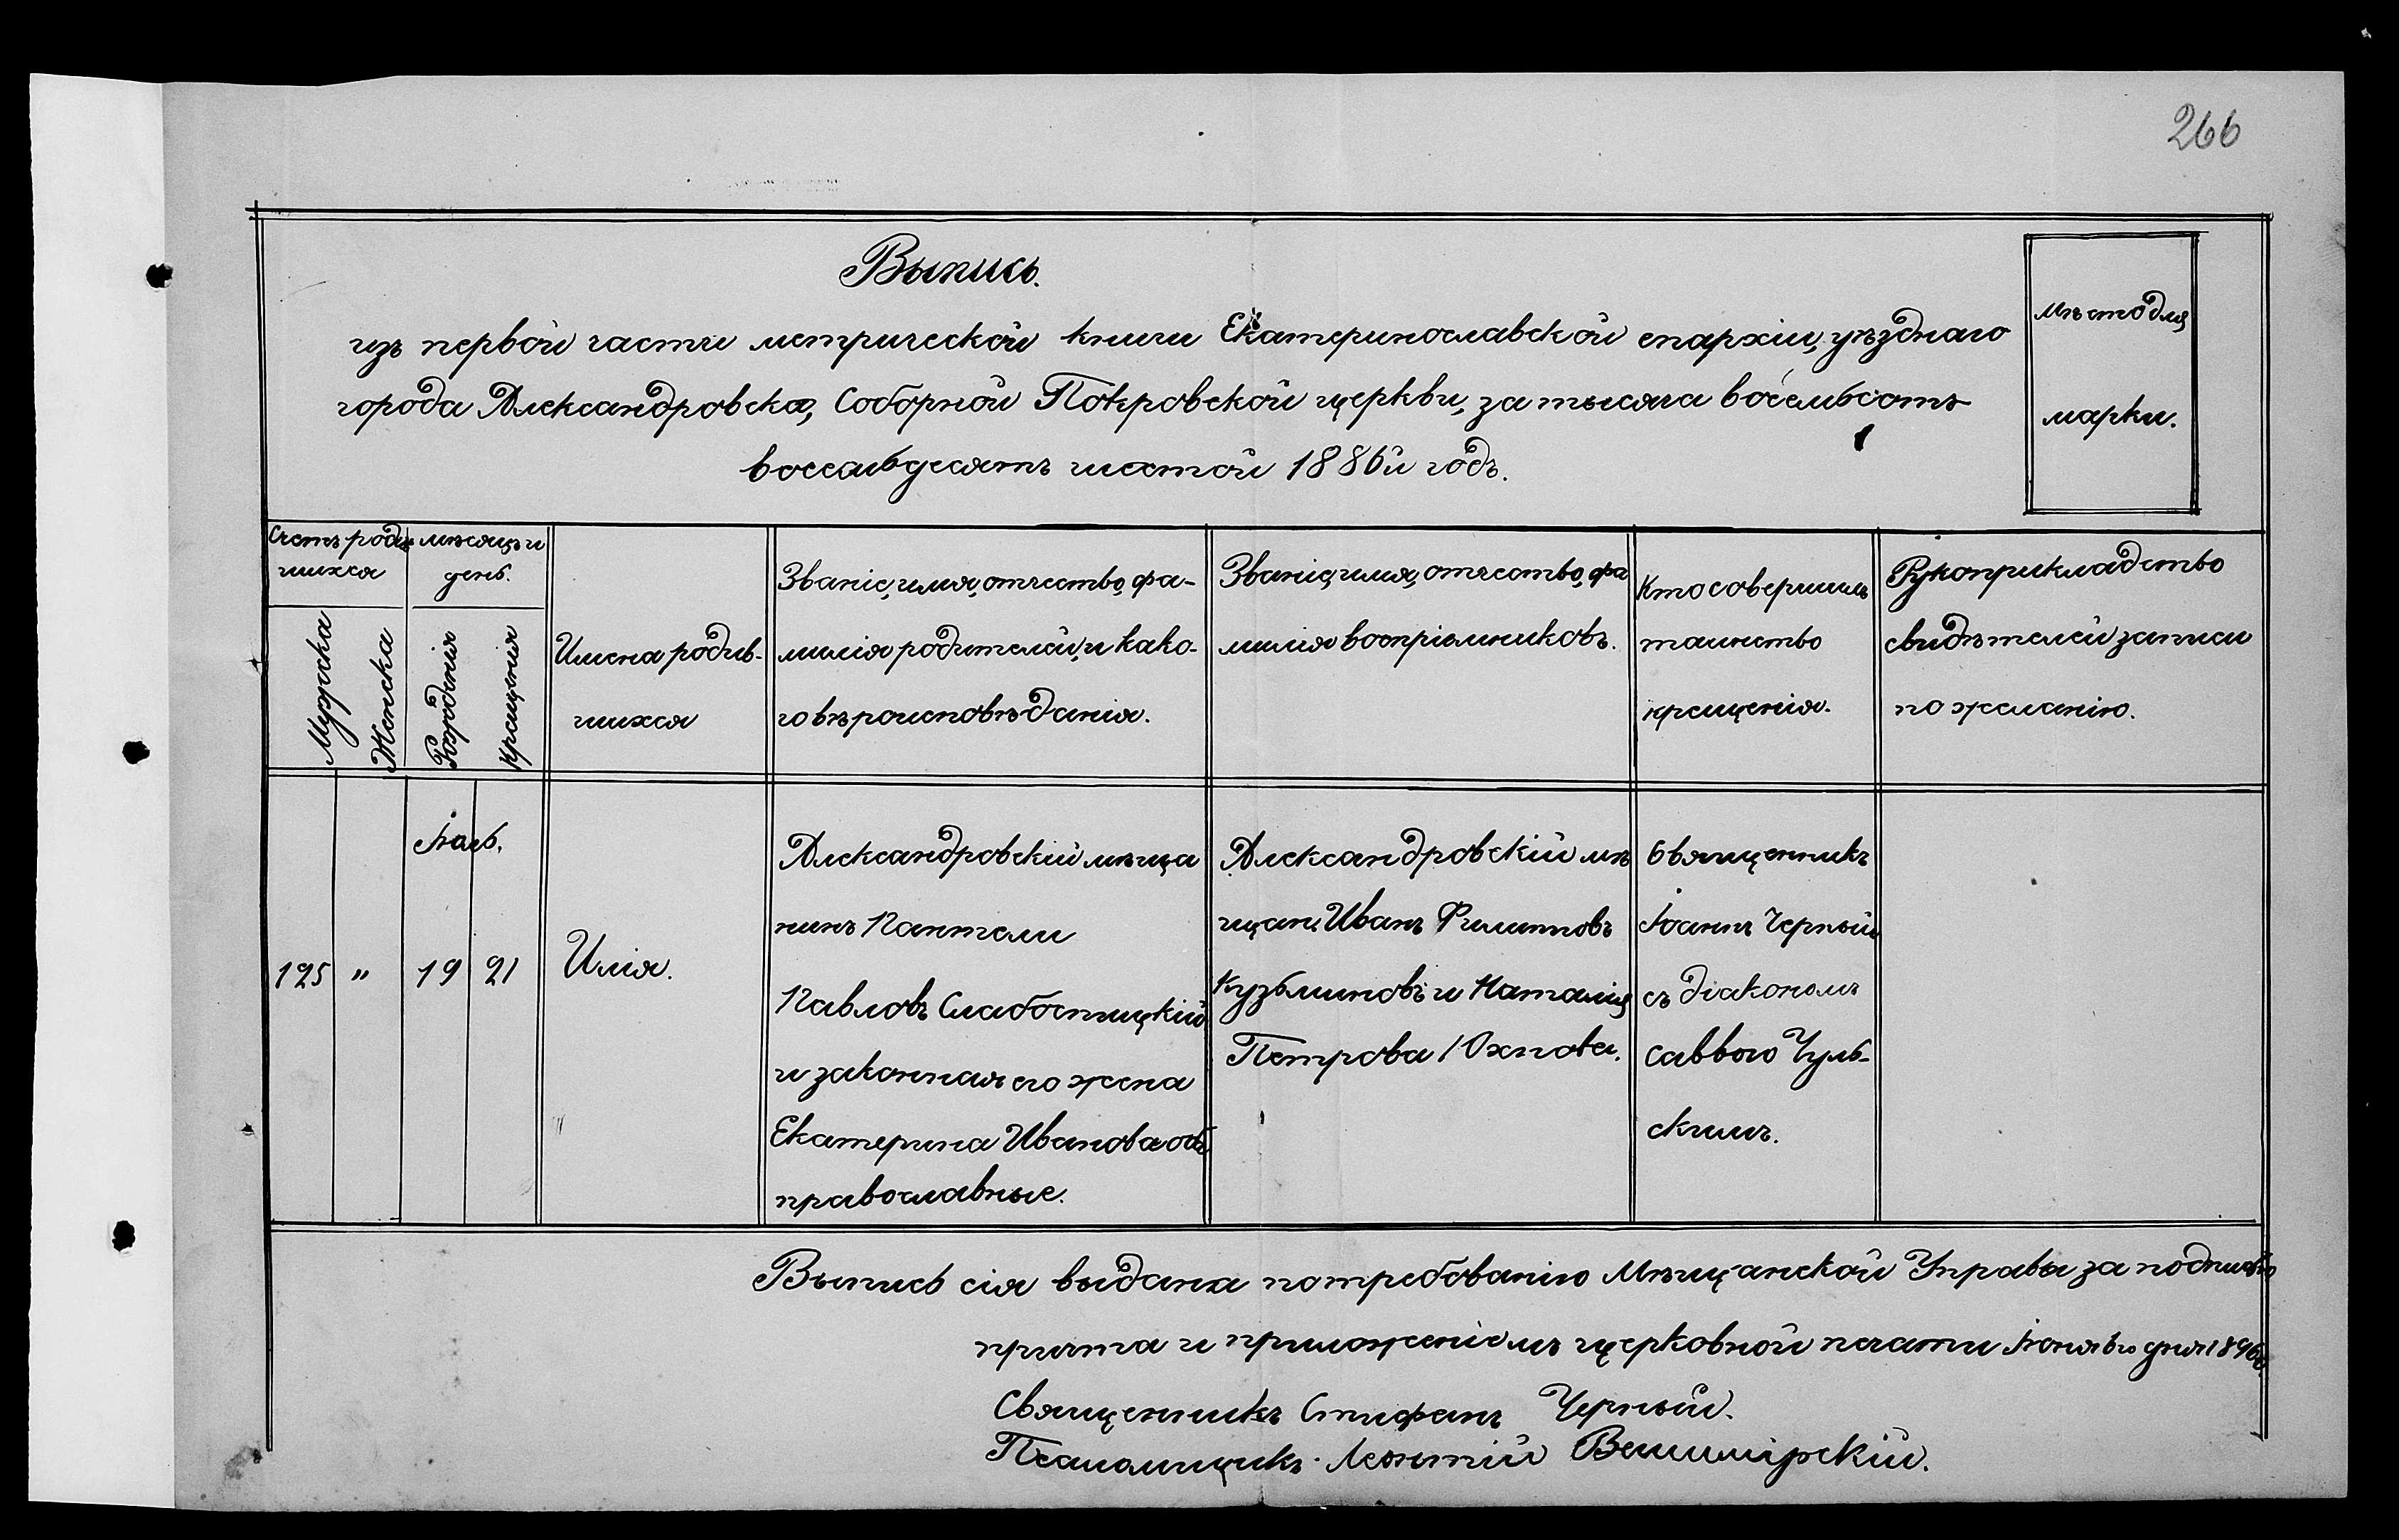 266
Выпись.
изъ первой части метрической книги Екатеринославской епархіи, уѣзднаго
города Александровска, Соборной Покровской церкви, за тысяча восемьсотъ
восемьдесятъ шестой 1886й годъ.
Мѣсто для
марки.
Счетъ родив
шихся
Мужска
Женска
мѣсяцъ и
день.
Рожденія
Крещенія
Имена родив-
шихся
Званіе, имя, отчество, фа-
милія родителей, и како-
го вѣроисповѣданія.
Званіе, имя, отчество, фа
милія воспріемниковъ.
Кто совершилъ
таинство
крещенія.
Рукоприкладство
свидѣтелей записи
по желанію.
125
"
Іюль.
19
21
Илія.
Александровскій мѣща
нинъ Пантели
Павловъ Слабостицкій
и законная его жена
Екатерина Иванова оба
православные.
Александровскій мѣ
щан. Иванъ Филиповъ
Кузьминовъ и Наталія
Петрова Юхнова.
Священникъ
Іоаннъ Черный
съ діакономъ
Саввою Чуль-
скимъ.
Выпись сія выдана по требованію Мѣщанской Управы за подписью
причта и приложеніемъ церковной печати Іюня 6го дня 1896г.
Священникъ Стифанъ Черный.
Псаломщикъ Леонтій